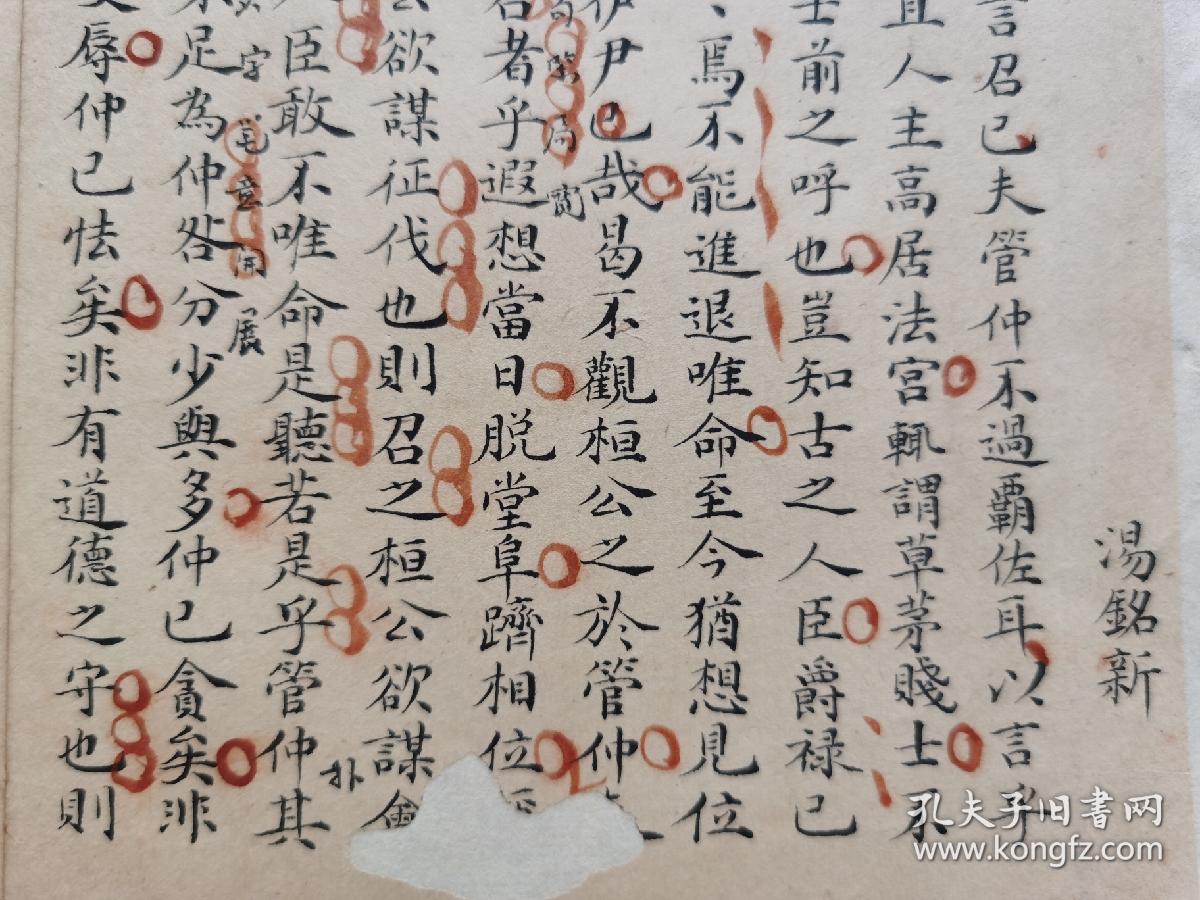 湯銘新
言召已夫管仲不過霸佐耳以言乎
且人主高居法宮輒謂草茅賤士不
士前之呼也豈知古之人臣爵禄已
焉不能進退唯命至今猶想見位
伊尹已哉曷不觀桓公之於管仲
者乎遐想當日脱堂阜躋相位
欲謀征伐也則召之桓公欲謀
臣敢不唯命是聽若是乎管仲其
足為仲咎分少與多仲已貪矣非
辱仲已怯矣非有道德之守也則
字
筆意開展
局
扑
孔夫子旧书网
www.kongfz.com